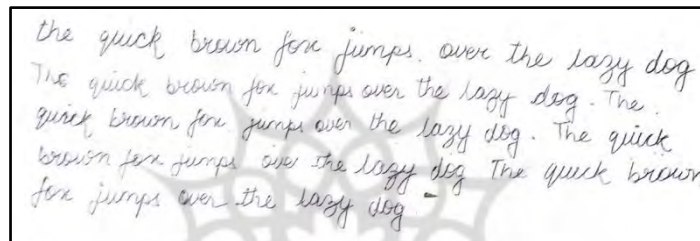 the quick brown fox jumps. over the lazy dog
The quick brown fox jumps over the lazy dog. The.
quick brown fox jumps over the lazy dog. The quick
brown fox jumps over the lazy dog The quick brown
fox jumps over the lazy dog